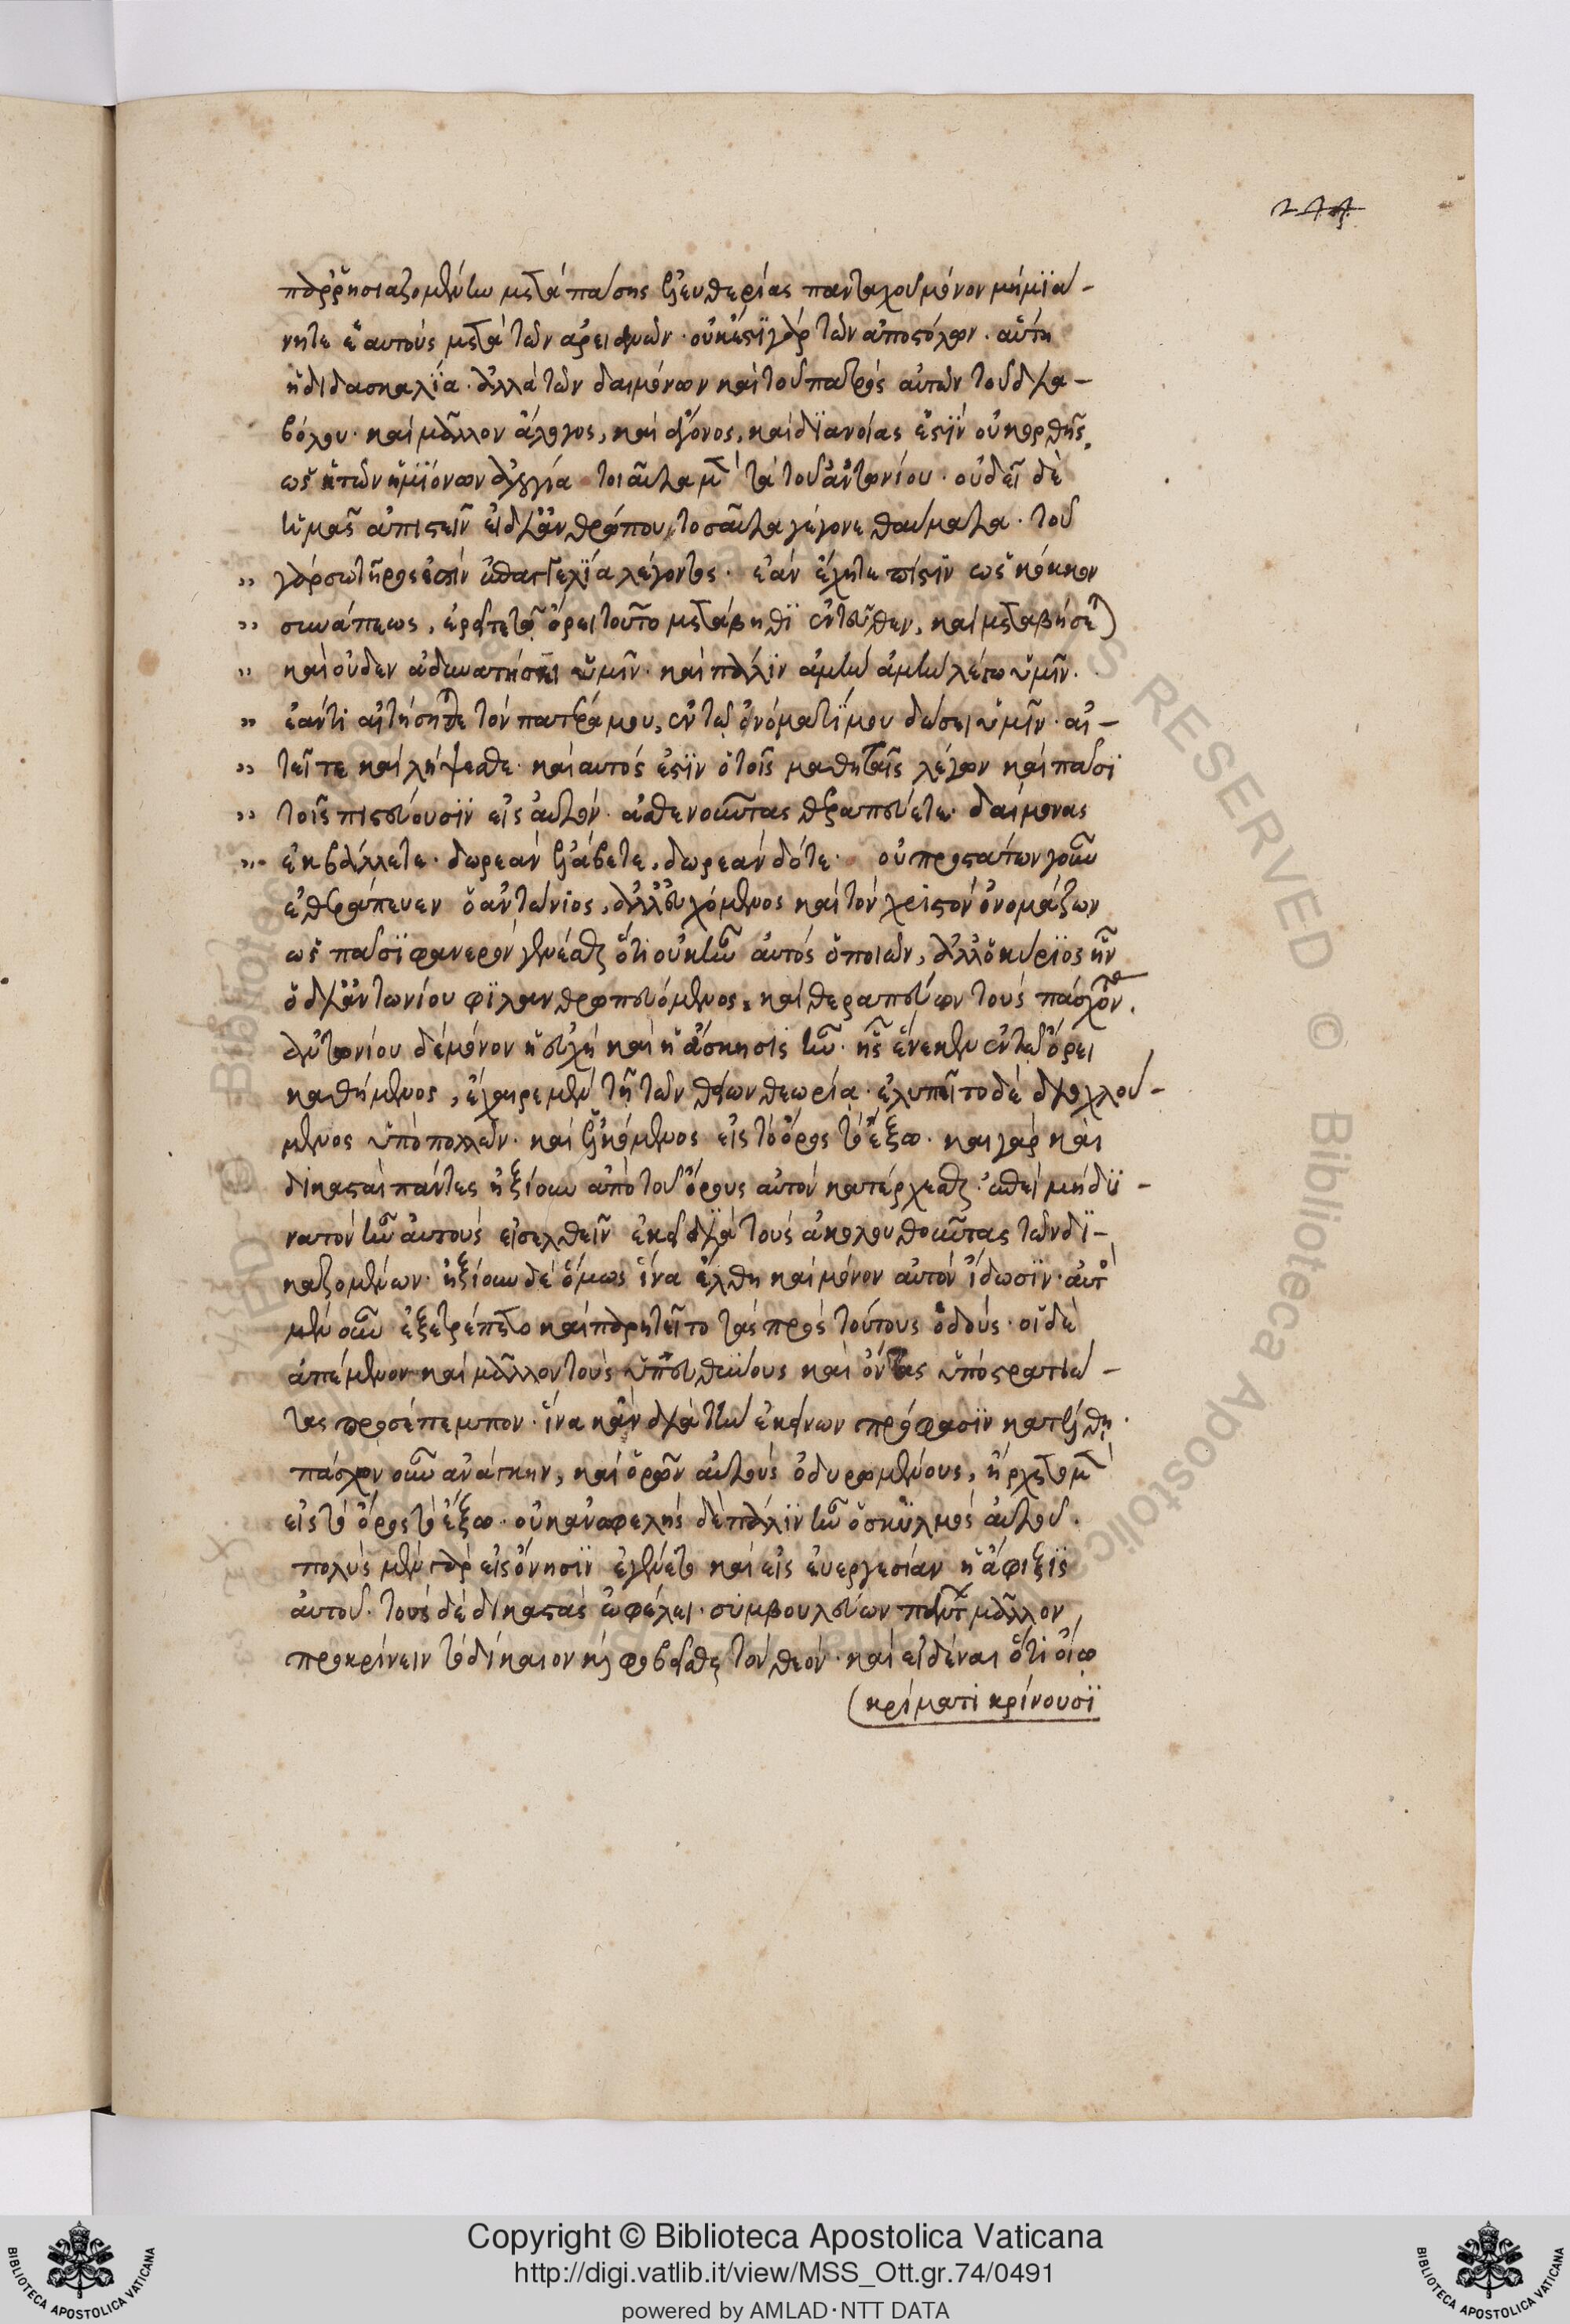 παρρησιαζομένην μετὰ πάσης ἐλευθερίας πανταχοῦ μόνον μὴ μϊά-
νητε ἑαυτοὺς μετὰ τῶν ἀρειανῶν· οὐκ ἔστϊ γὰρ τῶν ἀποστόλων· αὕτη
ἡ διδασκαλΐα· ἀλλὰ τῶν δαιμόνων καὶ τοῦ πατρὸς αὐτῶν τοῦ δια-
βόλου· καὶ μᾶλλον ἄλογος, καὶ ἄγονος, καὶ δϊανοίας ἐστϊν οὐκ ορθῆς,
ὡς ἡ τῶν ἡμϊόνων ἀλογία τοιαῦτα μὲν τὰ τοῦ ἀντωνίου· οὐ δεῖ δὲ
ἡμᾶς ἀπιστεῖν εἰ δι' ἀνθρώπου τοσαῦτα γέγονε θαύματα· τοῦ
" γὰρ σωτῆρος ἐστὶν ἐπαγγελϊα λέγοντος· ἐὰν ἔχητε πίστϊν ὡς κόκκον
" σινάπεως, ἐρεῖτε τῷ ὄρει τοῦτο μετάβηθϊ ἐντεῦθεν, καὶ μεταβήσεται
" καὶ οὐδὲν ἀδυνατήσει ὑμῖν· καὶ πάλϊν ἀμὴν ἀμὴν λέγω ὑμῖν·
" ἐάν τι αἰτήσητε τὸν πατέρα μου, ἐν τῷ ὀνόματϊ μου δώσει ὑμῖν· αἰ-
" τεῖτε καὶ λήψεσθε· καὶ αυτός ἐστϊν ὁ τοῖς μαθηταῖς λέγων καὶ πᾶσϊ
" τοῖς πιστεύουσϊν εἰς αὐτὸν· ἀσθενοῦντας θεραπεύετε· δαίμονας
" ἐκβάλλετε· δωρεὰν ἐλάβετε, δωρεὰν δότε· οὐ προστάττων γοῦν
ἐθεράπευεν ὁ ἀντώνιος, ἀλλ' εὐχόμενος καὶ τὸν χριστὸν ὀνομάζων
ὡς πᾶσϊ φανερὸν γενέσθαι ὅτι οὐκ ἦν αὐτὸς ὁ ποιῶν, ἀλλ' ὁ κύρϊος ἦν
ὁ δι' ἀντωνίου φϊλανθρωπευόμενος, καὶ θεραπεύων τοὺς πάσχοντας.
ἀντωνίου δὲ μόνον ἡ εὐχὴ καὶ ἡ ἄσκησις ἦν· ἧς ἕνεκεν ἐν τῷ ὄρει
καθήμενος, ἔχαιρε μὲν τῇ τῶν θείων θεωρία· ἐλυπεῖτο δὲ διοχλού-
μενος ὑπὸ πολλῶν· καὶ ἑλκόμενος εἰς τὸ ὄρος τὸ ἔξω· και γαρ και
δικασταὶ πάντες ἠξίουν ἀπὸ τοῦ ὄρους αὐτὸν κατέρχεσθαι· ἐπεὶ μὴ δϋ-
νατὸν ἦν αὐτοὺς εἰσελθεῖν ἐκεῖ δϊὰ τοὺς ἀκολουθοῦντας τῶν δϊ-
καζομένων· ἠξίουν δὲ ὅμως ἵνα ἔλθη καὶ μόνον αὐτὸν ἴδωσϊν· αὐτὸς
μὲν οὖν ἐξετρέπετο καὶ παρῃτεῖτο τὰς πρὸς τούτους ὁδούς· οἱ δὲ
ἀπέμενον καὶ μᾶλλον τοὺς ὑπευθύνους καὶ ὄντας ὑπὸ στρατιώ-
τας προσέπεμπον· ἵνα κἂν διὰ τὴν ἐκείνων πρόφασϊν κατέλθῃ·
πάσχων οὖν ἀνάγκην, καὶ ὁρῶν αὐτοὺς ὀδυρομένους, ἤρχετο μὲν
εἰς τὸ ὄρος τὸ ἔξω· οὐκ ἀνωφελὴς δὲ πάλϊν ἦν ὁ σκϋλμὸς αὐτοῦ.
πολλοῖς μὲν γὰρ εἰς ὄνησϊν ἐγένετο καὶ εἰς ἐυεργεσίαν ἡ ἄφιξϊς
ἀυτοῦ· τοὺς δὲ δικαστὰς ὠφέλει· συμβουλεύων πάντων μᾶλλον
προκρίνειν τὸ δίκαιον καὶ φοβεῖσθαι τὸν θεόν· καὶ εἰδέναι ὅτι οἵῳ
κρίματι κρίνουσϊ
Copyright © Biblioteca Apostolica Vaticana
http://digi.vatlib.it/view/MSS_Ott.gr.74/0491
powered by AMLAD·NTT DATA